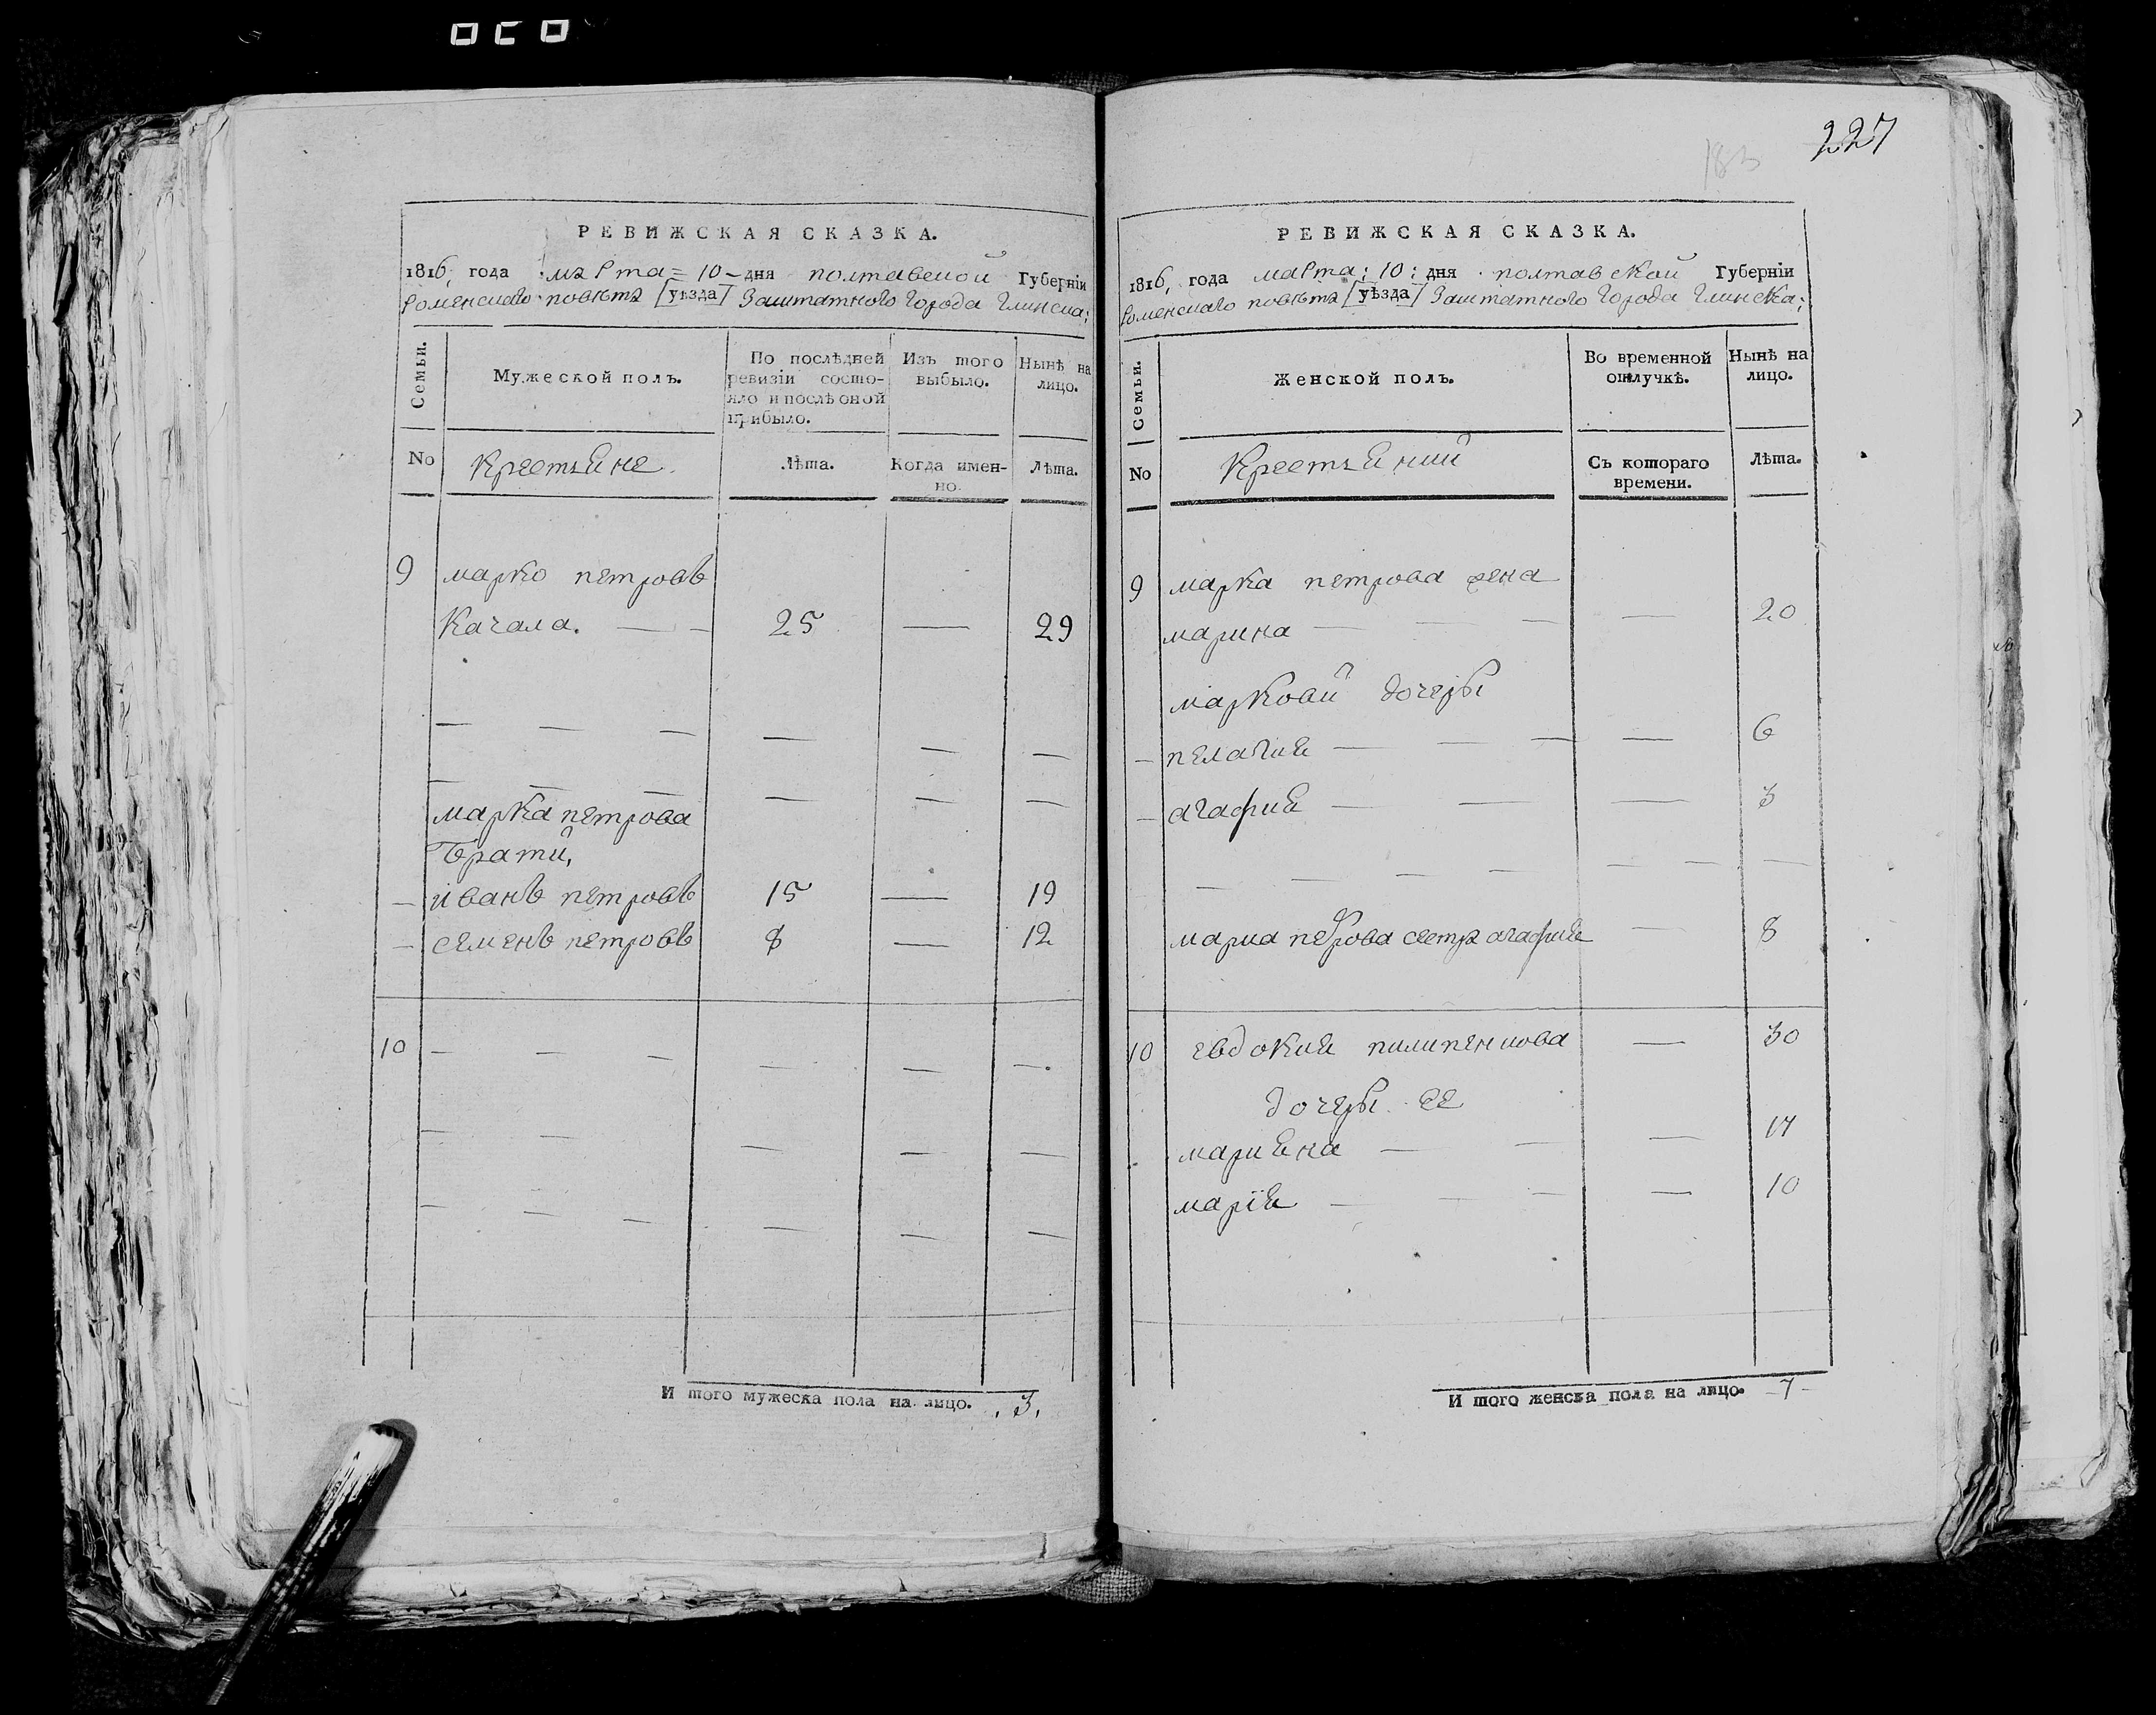 227
183
РЕВИЖСКАЯ СКАЗКА.
1816, года марта = 10 – дня полтавской Губерніи
Роменскаго повѣтъ [уѣзда] Заштатного города Глинска;
Семьи.
Мужеской полъ.
По послѣдней ревизіи состо-
яло и послѣ оной
прибыло.
Изъ того
выбыло.
Нынѣ на
лицо.
No
Крестьяне.
Лѣта.
Когда имен-
но.
Лѣта.
9 марко петровъ
Качала. — — 25 — 29
марка петрова
брати,
— иванъ петровъ 15 — 19
— семенъ петровъ 8 — 12
10 — — — — — —.
И того мужеска пола на лицо. . 3 .
РЕВИЖСКАЯ СКАЗКА.
1816, года марта : 10 : дня полтавской Губерніи
Роменскаго повѣтъ [уѣзда] Заштатного города Глинска;
Семьи.
Женской полъ.
Во временной
отлучкѣ.
Нынѣ на
лицо.
No
Крестьяний
Съ котораго
времени.
Лѣта.
9 марка петрова жена
марина — — — — 20
маркови дочеры
— пелагия — — — — 6
— агафия — — — 3
марка петрова сестра агафия — 8
10 евдокия пилипенкова — 30
дочеры ее
марияна — — — 14
марїя — — — — 10
И того женска пола на лицо. – 7 –